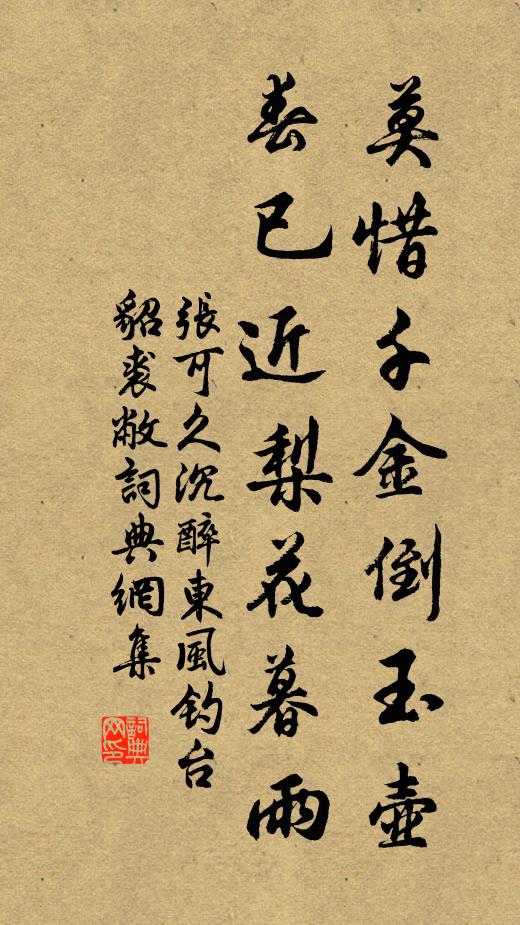 莫惜千金倒玉壺
春已近梨花暮雨
張可久沉醉東風钓台
貂裘敝詞典網集
詞典网印